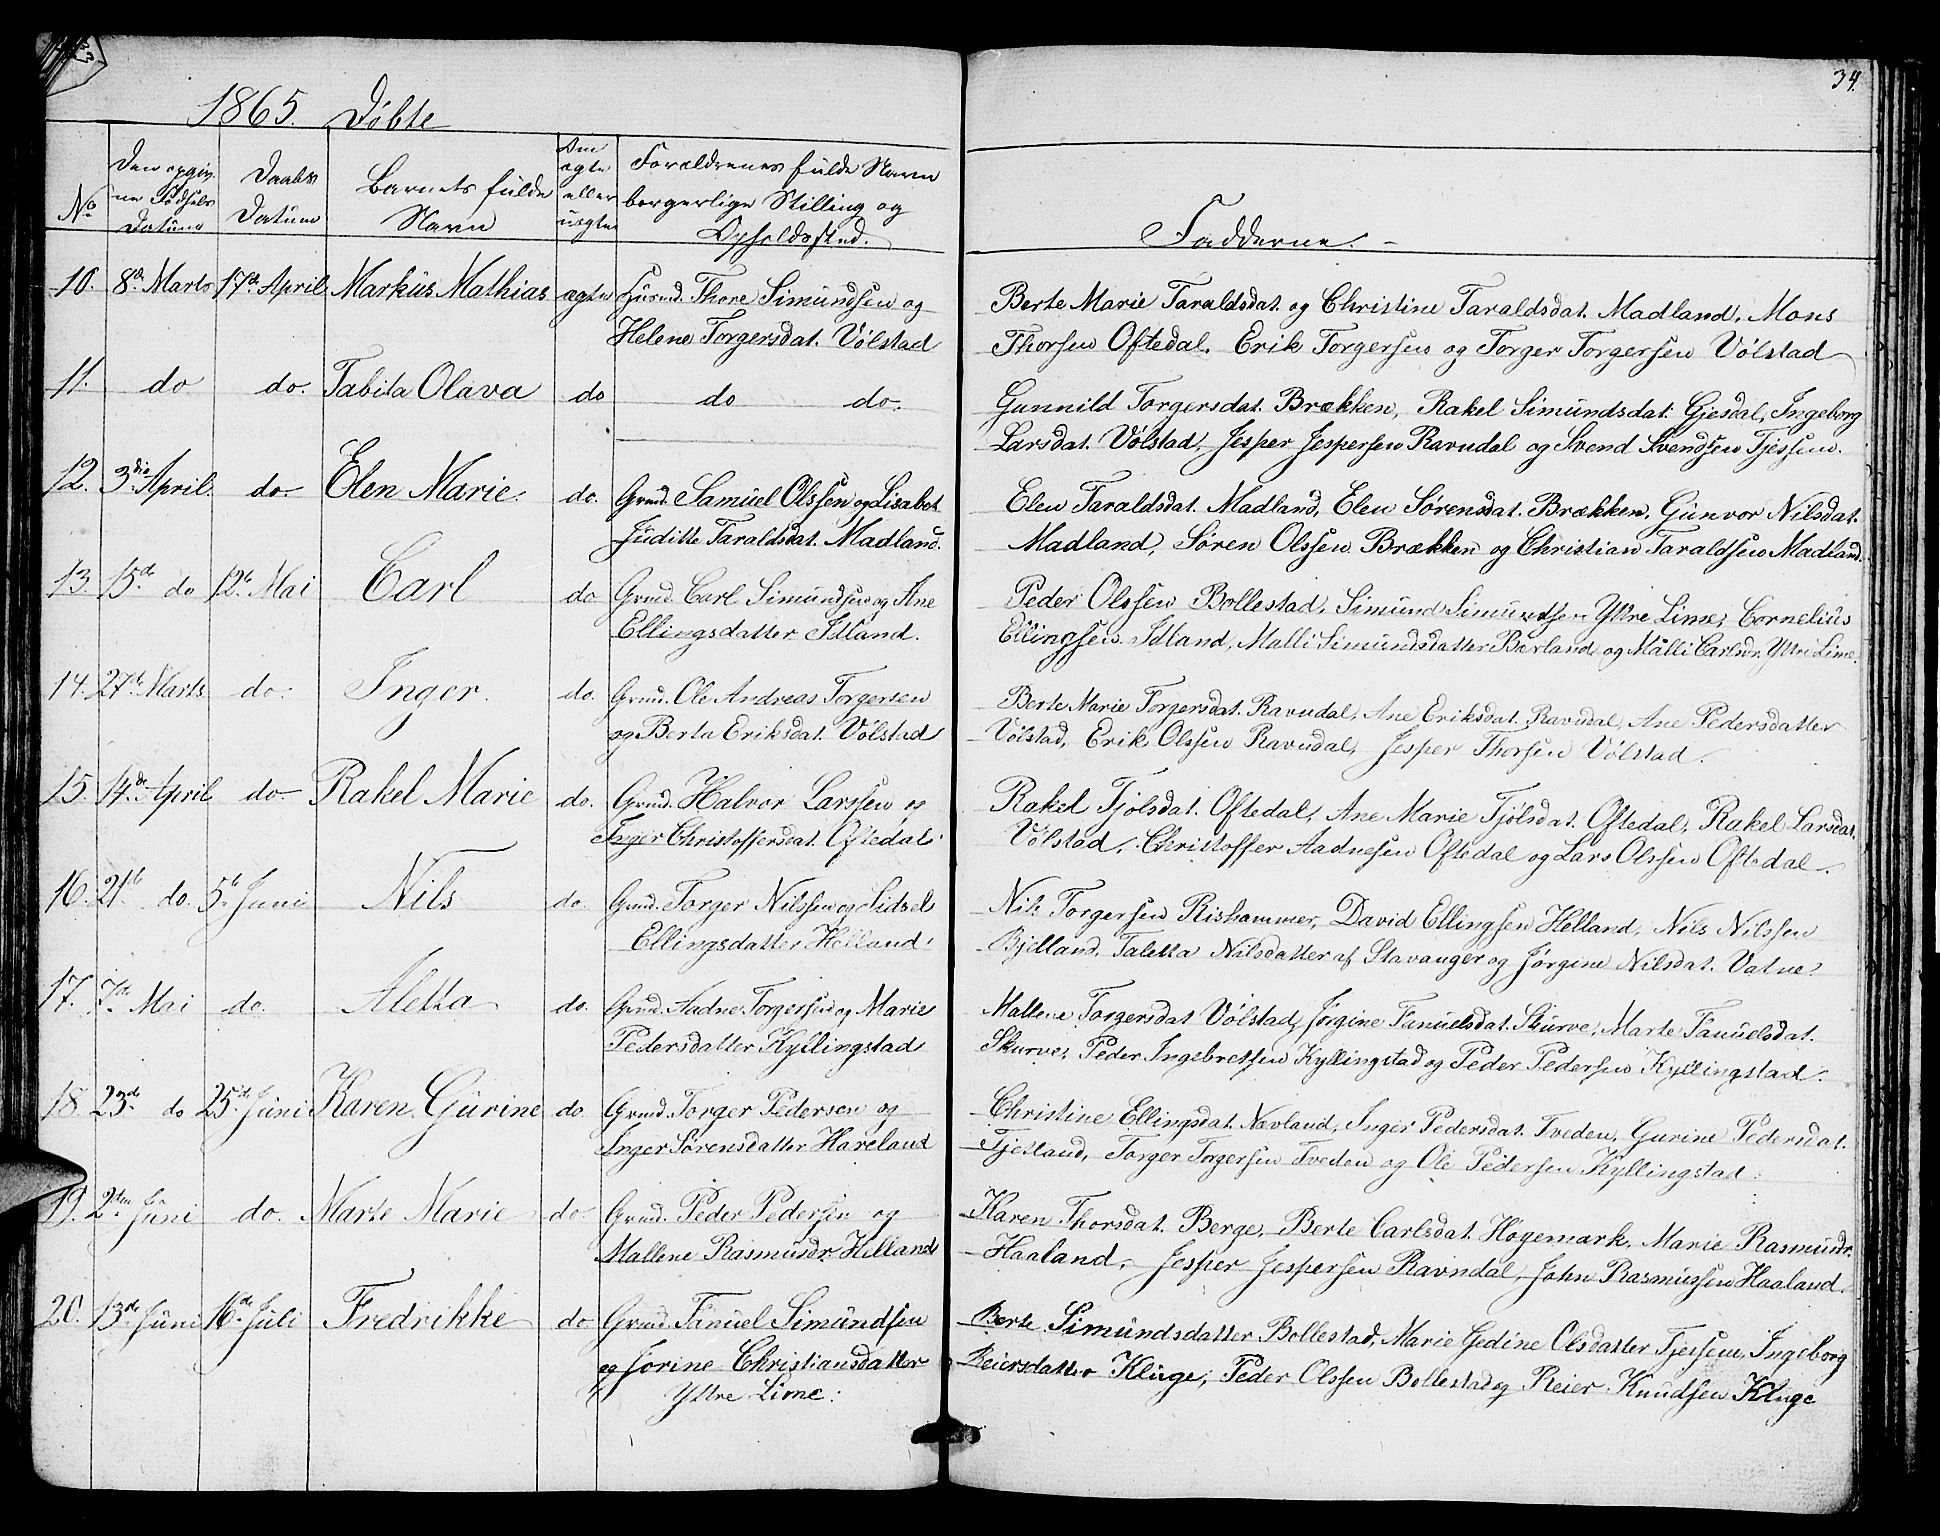 34.
1865. Døbte
No
Den opgiv-
ne Fødsels
Datum
Daabs
Datum
Barnets fulde
Navn
Om
ægte
eller
uægte
Forældrenes fulde Navn
borgerlige Stilling og
Opholdssted.
Fadderne.
10. 8de Marts 17de April Markus Mathias ægte Huusmd. Thore Simundsen og
Helene Torgersdat. Vølstad
Berte Marie Taraldsdat. og Christine Taraldsdat. Madland, Mons
Thorsen Oftedal. Erik Torgersen og Torger Torgersen Vølstad
11. do do. Tabita Olava do do do.
Gunnild Torgersdat. Brækken, Rakel Simundsdat. Gjesdal, Ingeborg
Larsdat. Vølstad, Jesper Jespersen Ravndal og Svend Svendsen Tjessem.
12. 3die April. do. Elen Marie. do. Grmd. Samuel Olssen og Lisabet
Juditte Taraldsdat. Madland.
Elen Taraldsdat. Madland, Elen Sørensdat. Brækken, Gunvor Nilsdat.
Madland, Søren Olssen Brækken og Christian Taraldsen Madland.
13. 15de do 12te Mai Carl do Grmd. Carl Simundsen og Ane
Ellingsdatter Idland.
Peder Olssen Bollestad, Simund Simundsen Yttre Lime, Cornelius
Ellingsen Idland, Malli Simundsdatter Bærland og Malli Carlsdr. Yttre Lime.
14. 27de Marts do. Inger. do. Grmd. Ole Andreas Torgersen
og Berta Eriksdat. Vølstad
Berte Marie Torgersdat. Ravndal, Ane Eriksdat. Ravndal, Ane Pedersdatter
Vølstad, Erik Olssen Ravndal, Jesper Thorsen Vølstad.
15. 14de April do. Rakel Marie do. Grmd. Halvor Larssen og
Inger Christoffersdat. Oftedal.
Rakel Tjølsdat. Oftedal, Ane Marie Tjølsdat. Oftedal, Rakel Larsdat.
Vølstad, Christoffer Aadnesen Oftedal og Lars Olssen Oftedal.
16. 21de do. 5te Juni Nils do. Grmd. Torger Nilssen og Sidsel
Ellingsdatter Helland.
Nils Torgersen Rishammer, David Ellingsen Helland, Nils Nilssen
Bjelland, Taletta Nilsdatter af Stavanger og Jørgine Nilsdat. Vatne.
17. 7de Mai do. Aletta do. Grmd. Aadne Torgersen og Marie
Pedersdatter Kyllingstad
Mallene Torgersdat Vølstad, Jørgine Fanuelsdat. Skurve, Marte Fanuelsdat.
Skurve, Peder Ingebretsen Kyllingstad og Peder Pedersen Kyllingstad.
18. 23de do 25de Juni Karen Gurine do. Grmd. Torger Pedersen og
Inger Sørensdatter Haveland
Christine Ellingsdat. Nevland, Inger Pedersdat. Tveden, Gurine Pedersdat.
Tjetland, Torger Torgersen Tveden og Ole Pedersen Kyllingstad.
19. 2den Juni do. Marte Marie do. Grmd. Peder Pedersen og
Mallene Rasmusdr. Helland
Karen Thorsdat. Berge, Berte Carlsdat. Høgemark, Marie Rasmusdr.
Haaland, Jesper Jespersen Ravndal, John Rasmussen Haaland.
20. 13de Juni 16de Juli Fredrikke do Grmd. Fanuel Simundsen
og Jorine Christiansdatter
Yttre Lime.
Berte Simundsdatter Bollestad, Marie Gedine Olsdatter Tjessem, Ingeborg
Reiersdatter Kluge, Peder Olssen Bollestad og Reier Knudsen Kluge